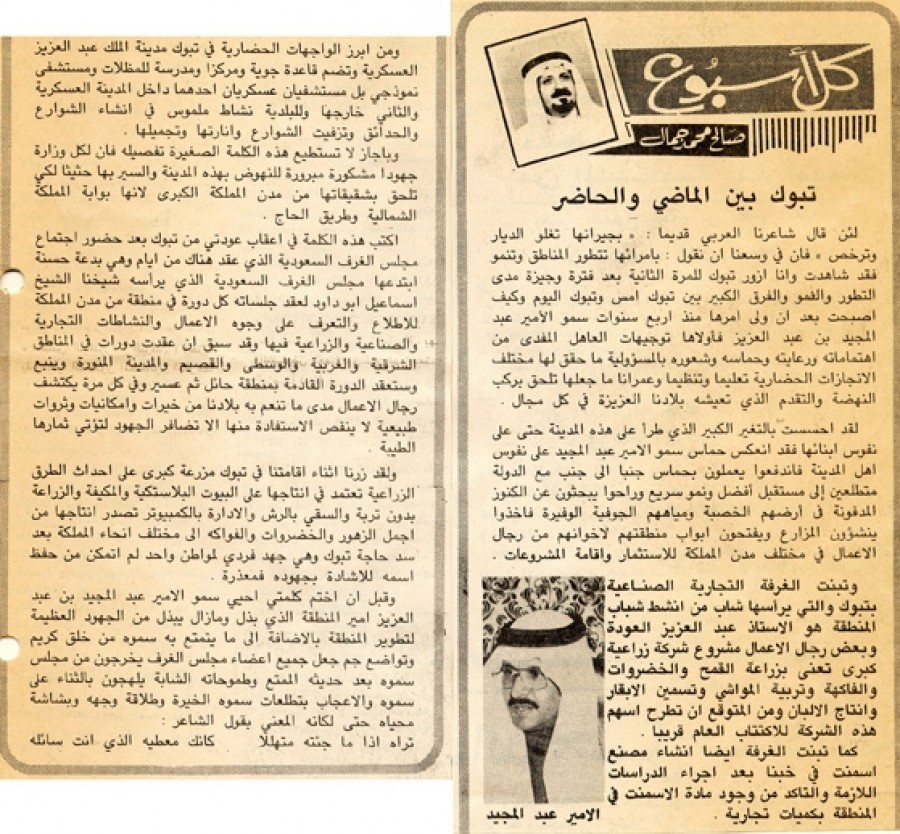 كل أسبوع
صالح محمد جمال
تبوك بين الماضي والحاضر
لئن قال شاعرنا العربي قديما : « بجيرانها تغلو الديار
وترخص » فان في وسعنا ان نقول : بامرائها تتطور المناطق وتنمو
فقد شاهدت وانا ازور تبوك للمرة الثانية بعد فترة وجيزة مدى
التطور والنمو والفرق الكبير بين تبوك امس وتبوك اليوم وكيف
اصبحت بعد ان ولى امرها منذ اربع سنوات سمو الأمير عبد
المجيد بن عبد العزيز فأولاها توجيهات العاهل المفدى من
اهتماماته ورعايته وحماسه وشعوره بالمسؤولية ما حقق لها مختلف
الانجازات الحضارية تعليما وتنظيما وعمرانا ما جعلها تلحق بركب
النهضة والتقدم الذي تعيشه بلادنا العزيزة في كل مجال .
لقد احسست بالتغير الكبير الذي طرا على هذه المدينة حتى على
نفوس ابنائها فقد انعكس حماس سمو الامير عبد المجيد على نفوس
اهل المدينة فاندفعوا يعملون بحماس جنبا الى جنب مع الدولة
متطلعين إلى مستقبل أفضل ونمو سريع وراحوا يبحثون عن الكنوز
المدفونة في أرضهم الخصبة ومياههم الجوفية الوفيرة فاخذوا
ينشؤون المزارع ويفتحون ابواب منطقتهم لاخوانهم من رجال
الاعمال في مختلف مدن المملكة للاستثمار واقامة المشروعات .
وتبنت الغرفة التجارية الصناعية
بتبوك والتي يرأسها شاب من انشط شباب
المنطقة هو الاستاذ عبد العزيز العودة
وبعض رجال الاعمال مشروع شركة زراعية
كبرى تعنى بزراعة القمح والخضروات
والفاكهة وتربية المواشي وتسمين الابقار
وانتاج الالبان ومن المتوقع ان تطرح اسهم
هذه الشركة للاكتتاب العام قريبا .
كما تبنت الغرفة ايضا انشاء مصنع
اسمنت في خبنا بعد اجراء الدراسات
اللازمة والتاكد من وجود مادة الاسمنت في
المنطقة بكميات تجارية .
الامير عبد المجيد
ومن ابرز الواجهات الحضارية في تبوك مدينة الملك عبد العزيز
العسكرية وتضم قاعدة جوية ومركزا ومدرسة للمظلات ومستشفى
نموذجي بل مستشفيان عسكريان احدهما داخل المدينة العسكرية
والثاني خارجها وللبلدية نشاط ملموس في انشاء الشوارع
والحدائق وتزفيت الشوارع وانارتها وتجميلها .
وباجاز لا تستطيع هذه الكلمة الصغيرة تفصيله فان لكل وزارة
جهودا مشكورة مبرورة للنهوض بهذه المدينة والسير بها حثيثا لكي
تلحق بشقيقاتها من مدن المملكة الكبرى لانها بوابة المملكة
الشمالية وطريق الحاج .
اكتب هذه الكلمة في اعقاب عودتي من تبوك بعد حضور اجتماع
مجلس الغرف السعودية الذي عقد هناك من ايام وهي بدعة حسنة
ابتدعها مجلس الغرف السعودية الذي يرأسه شيخنا الشيخ
اسماعيل ابو داود لعقد جلساته كل دورة في منطقة من مدن المملكة
للاطلاع والتعرف على وجوه الاعمال والنشاطات التجارية
والصناعية والزراعية فيها وقد سبق ان عقدت دورات في المناطق
الشرقية والغربية والوسطى والقصيم والمدينة المنورة وينبع
وستعقد الدورة القادمة بمنطقة حائل ثم عسير وفي كل مرة يكتشف
رجال الاعمال مدى ما تنعم به بلادنا من خيرات وامكانيات وثروات
طبيعية لا ينقص الاستفادة منها الا تضافر الجهود لتؤتي ثمارها
الطيبة .
ولقد زرنا اثناء اقامتنا في تبوك مزرعة كبرى على احداث الطرق
الزراعية تعتمد في انتاجها على البيوت البلاستكية والمكيفة والزراعة
بدون تربة والسقي بالرش والادارة بالكمبيوتر تصدر انتاجها من
اجمل الزهور والخضروات والفواكه الى مختلف انحاء المملكة بعد
سد حاجة تبوك وهي جهد فردي لمواطن واحد لم اتمكن من حفظ
اسمه للاشادة بجهوده فمعذرة .
وقبل ان اختم كلمتي احيي سمو الامير عبد المجيد بن عبد
العزيز امير المنطقة الذي بذل ومازال يبذل من الجهود العظيمة
لتطوير المنطقة بالاضافة الى ما يتمتع به سموه من خلق كريم
وتواضع جم جعل جميع اعضاء مجلس الغرف يخرجون من مجلس
سموه بعد حديثه الممتع وطموحاته الشابة يلهجون بالثناء على
سموه والاعجاب بتطلعات سموه الخيرة وطلاقة وجهه وبشاشة
محياه حتى لكانه المعني بقول الشاعر :
تراه اذا ما جئته متهللا كانك معطيه الذي انت سائله